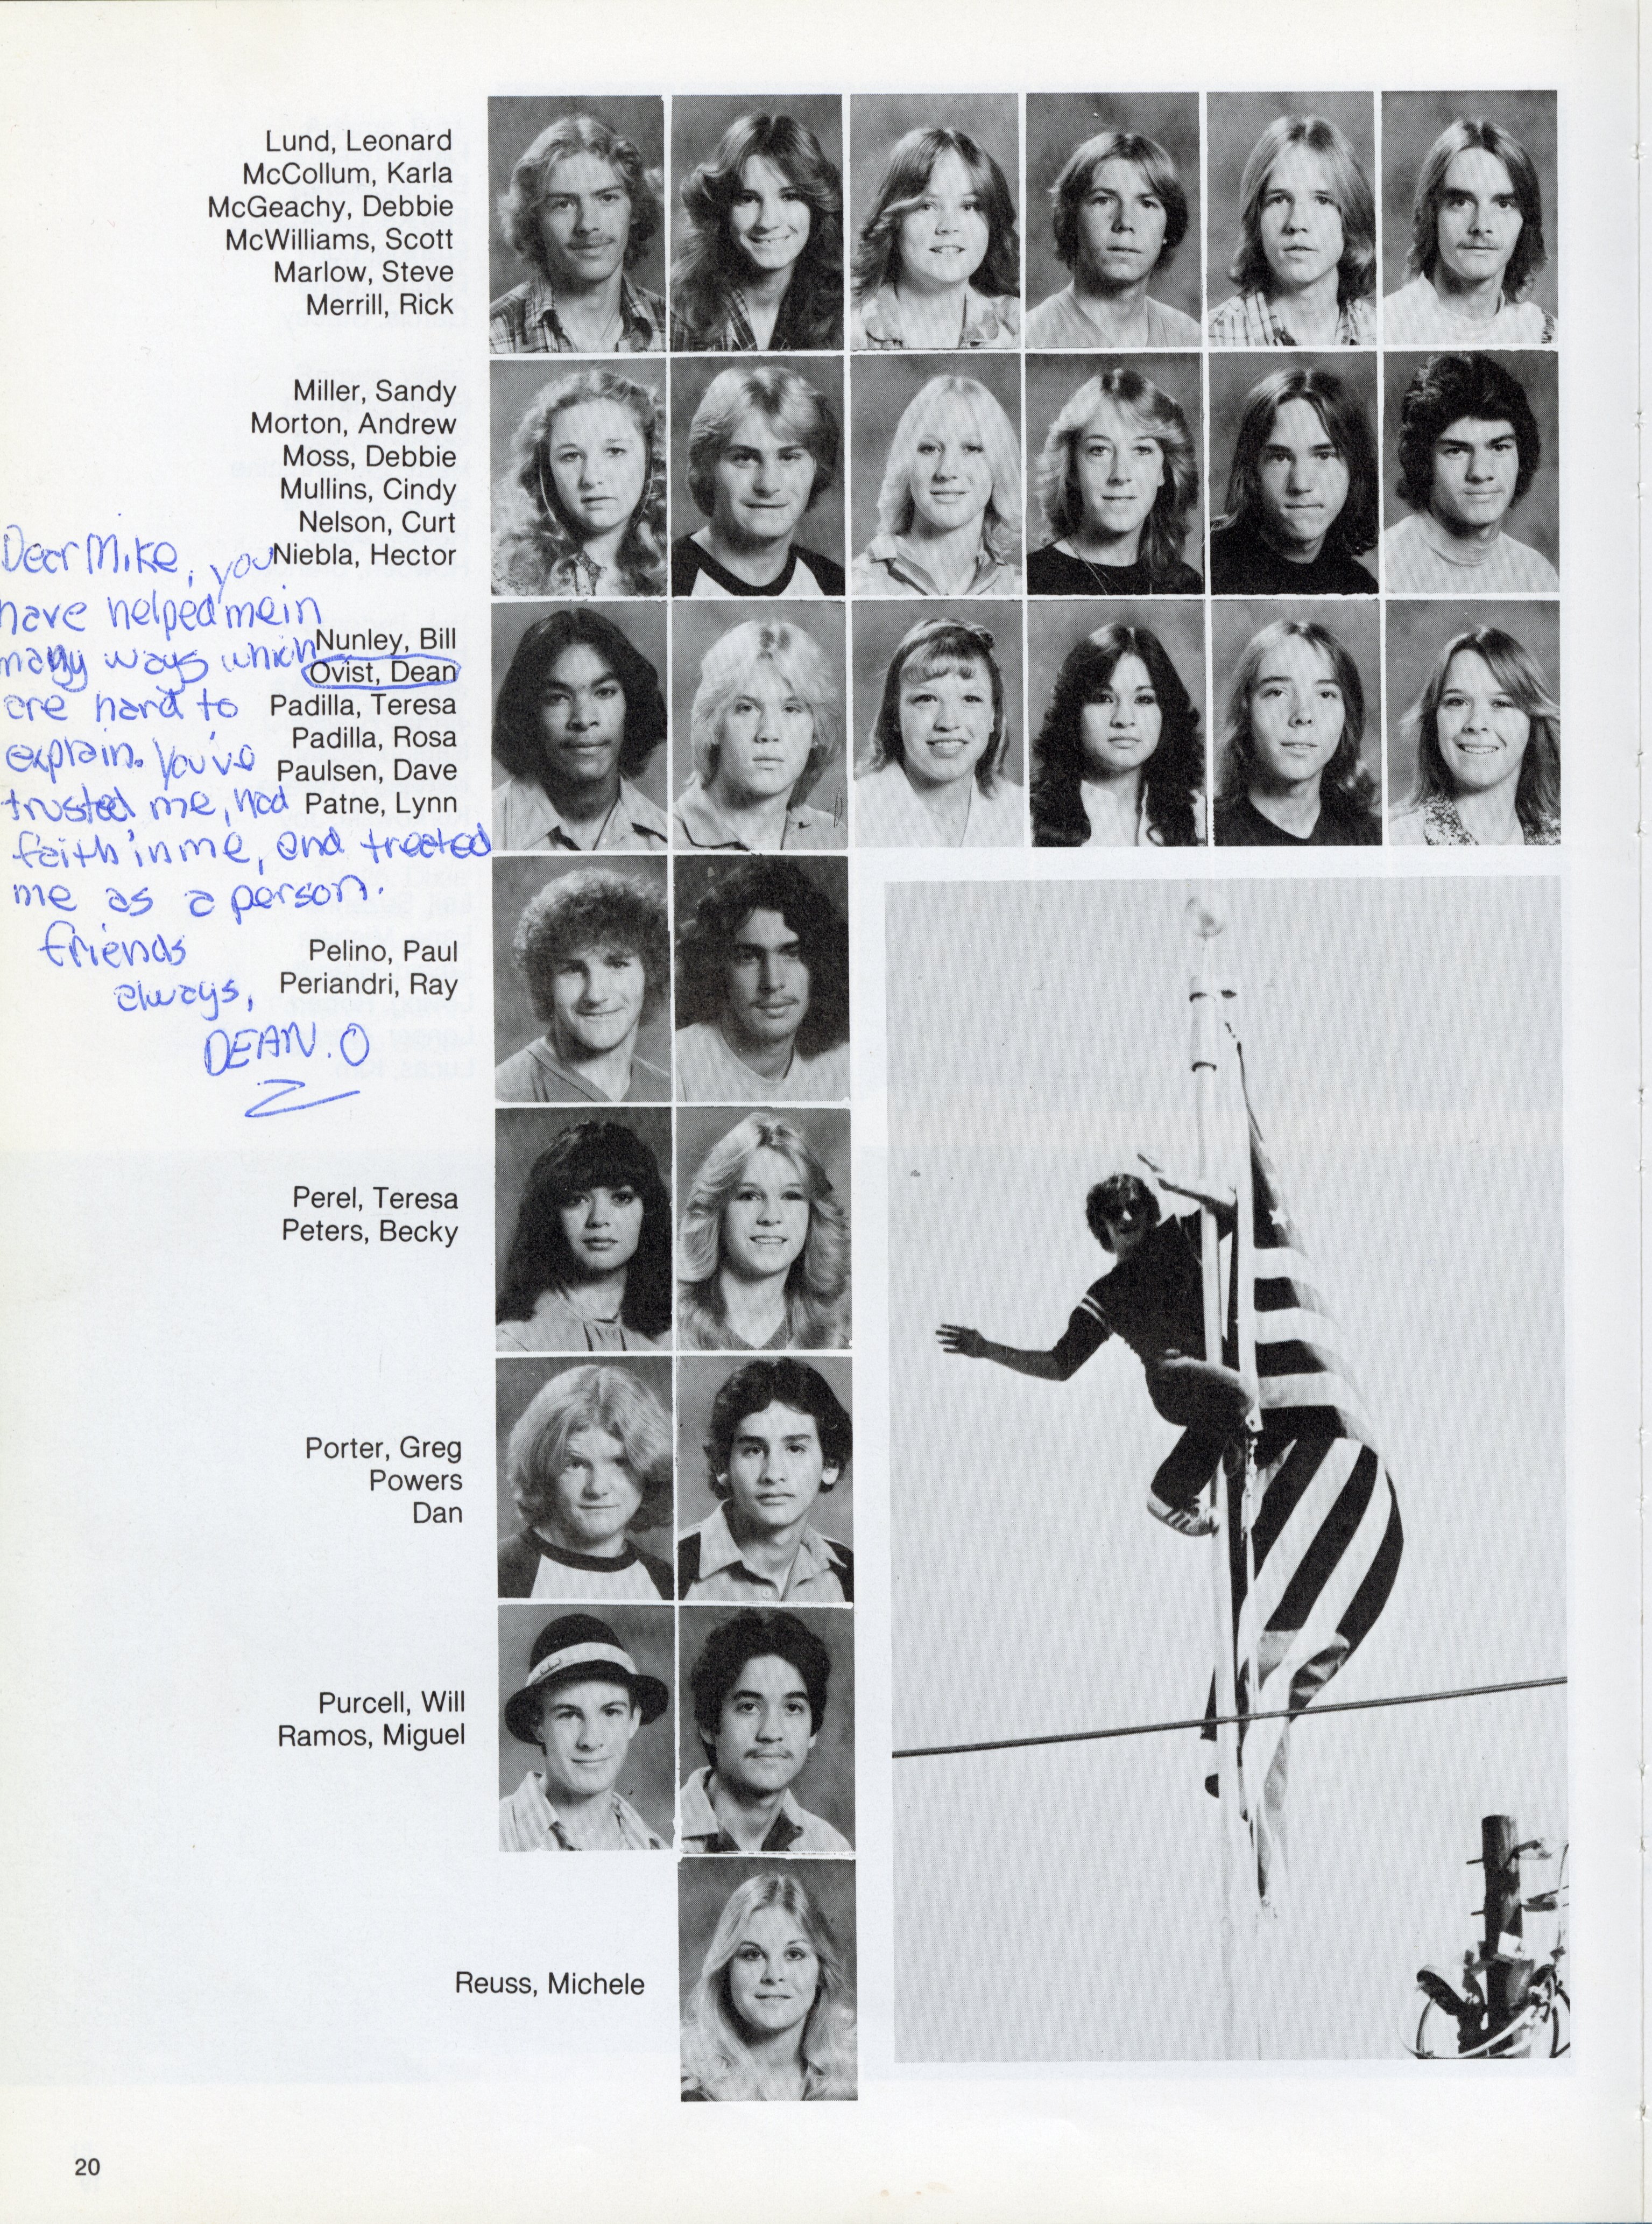 Lund, Leonard
McCollum, Karla
McGeachy, Debbie
McWilliams, Scott
Marlow, Steve
Merrill, Rick
Miller, Sandy
Morton, Andrew
Moss, Debbie
Mullins, Cindy
Nelson, Curt
Niebla, Hector
Nunley, Bill
Ovist, Dean
Padilla, Teresa
Padilla, Rosa
Paulsen, Dave
Patne, Lynn
Pelino, Paul
Periandri, Ray
Perel, Teresa
Peters, Becky
Porter, Greg
Powers
Dan
Purcell, Will
Ramos, Miguel
Reuss, Michele
Dear Mike, you
have helped me in
many ways which
are hard to
explain. You've
trusted me, had
faith in me, and treated
me as a person.
friends
always,
DEAN. O
20